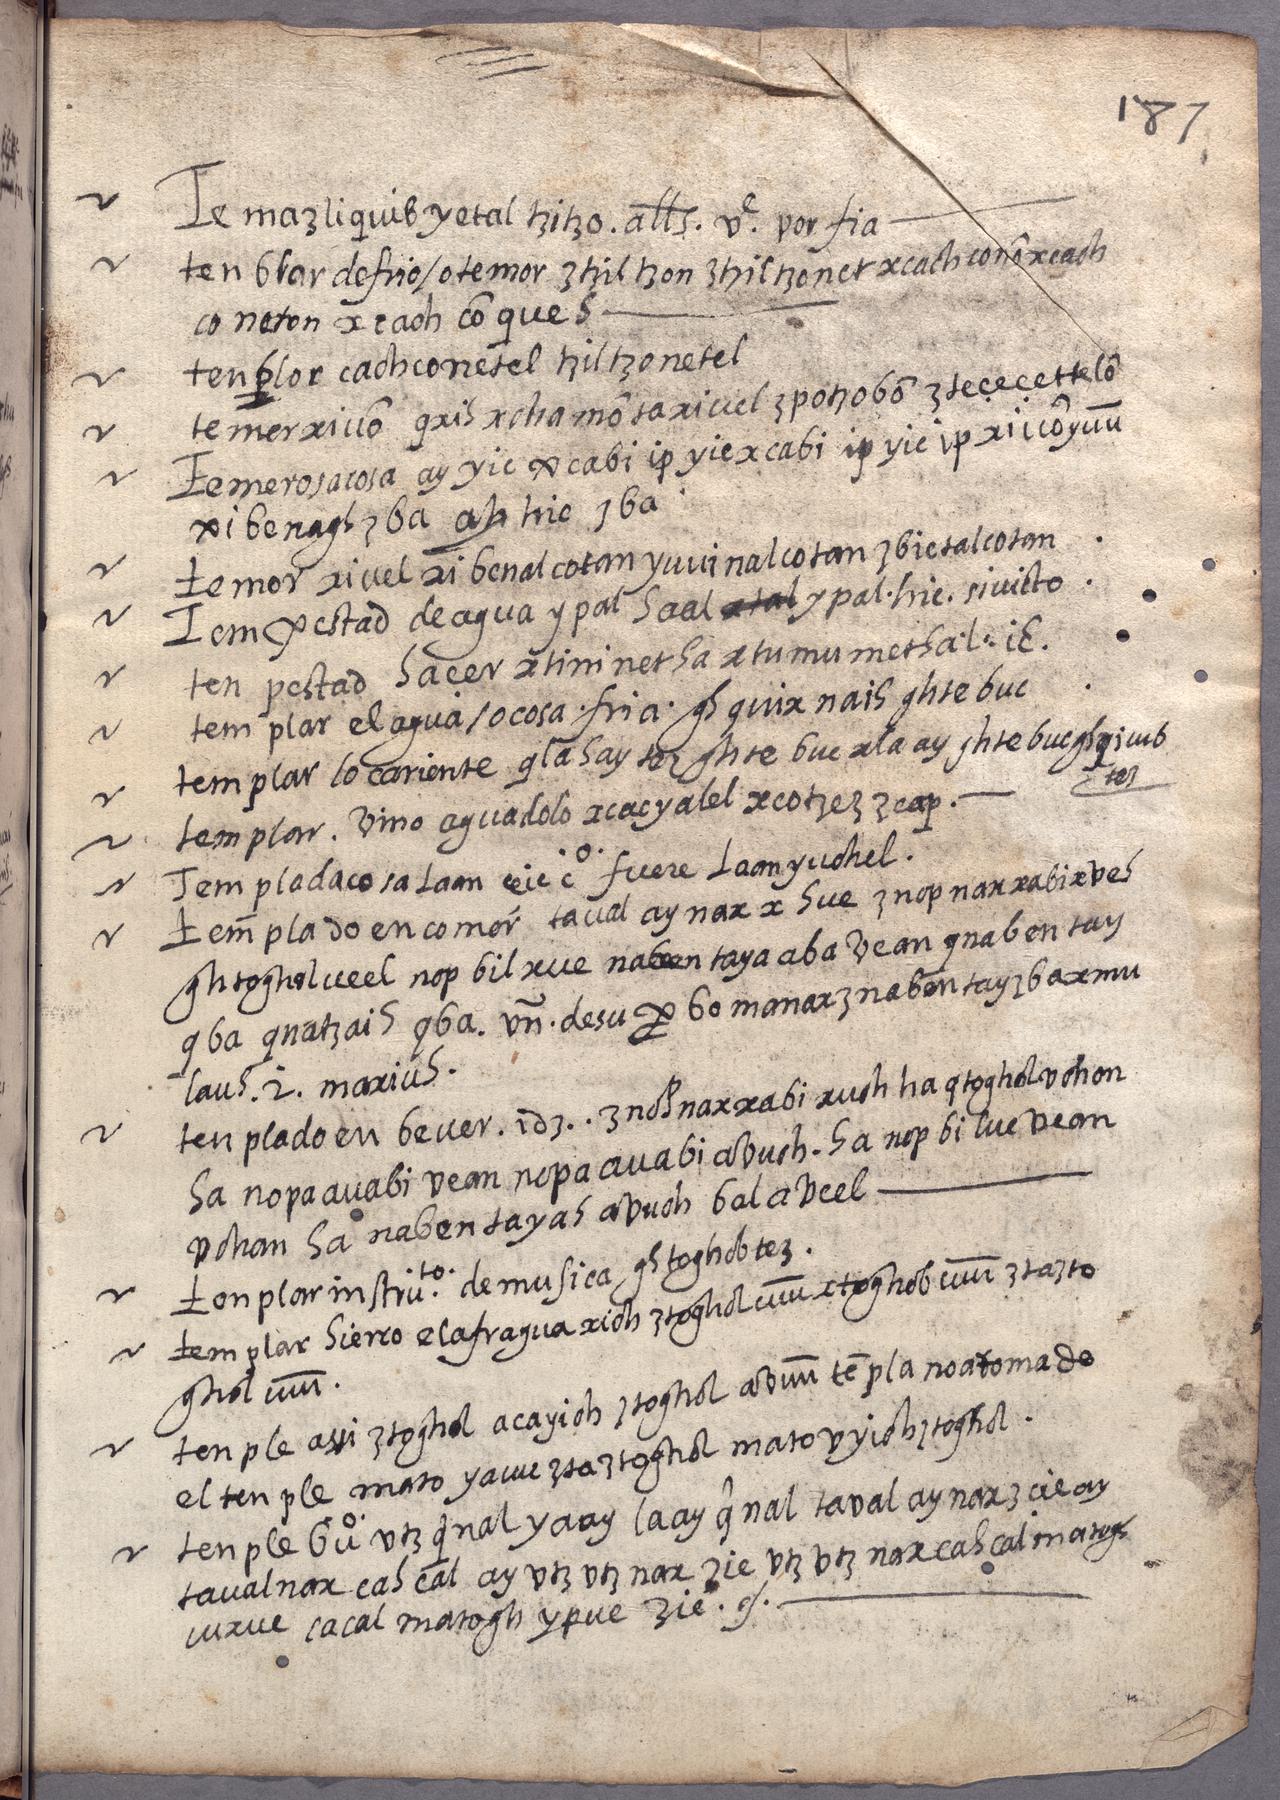 187
Te mazliquib yetal tzitzo. alls. vᵉ. por fia
ten blar de frio / o temor ztzil tzon ztzil tzonet xcach conō xcach
co neton xcach cō ques
tenblor cachconetel tziltzonetel
temer xiuō qxis xcha mō ta xiuel zpotzobō zteçeçettelō
Temerosa cosa ay yic xcabi ip yic xcabi ip yic ip xiuō yuū
xi benagh zba ah hic zba
temor xiuel xi benal cotan yuui nal cotan zbictal cotan
Tempestad de agua y pal haal ypal. hic. siuicto
ten pestad hacer xtini net ha x tumu met hal. ic.
templar el agua / o cosa. fria. gh quix naih ghtebuc
templar lo cariente qla hay tez ghte buc xla ay ghte buc gh qiub
tez
templar. vino aguadolo xcacyalel xcotzez zcap.
Templada cosa taan cic cº. fuere taan yuchel.
Templado en comer taval ay nax x hue z nop nax xabi x veh
ghtoghol ueel nop bil xue naben taya aba vean qnaben tay
q ba qnatzaih qba. vñ. desu bo manax z naben tay z ba x mu
lauh. 2. maxiuh.
ten plado en beuer. idz.. z nop nax xabi xuch ha q toghol vchon
ha nopa auabi vean nopa auabi avuch. ha nop bi lue vean
vchan ha naben tayah avuch bal a veel
Tenplar instruᵗᵒ. de musica gh toghob tez.
templar hierro e la fragua xich ztoghol cuuū xtoghob cuuū ztazto
ghol cuuū.
tenple assi ztoghol acayich ztoghol avuuū tēpla no a tomado
el tenple mato yauc zta ztoghol mato vyich ztoghol.
tenple buº. vtz qnal yaay laay qnal taval ay nax z cic ay
taualnax cah cal ay vtz vtz nax zic vtz vtz nax cah cal matogh
uxue cacal matogh ypue zic.